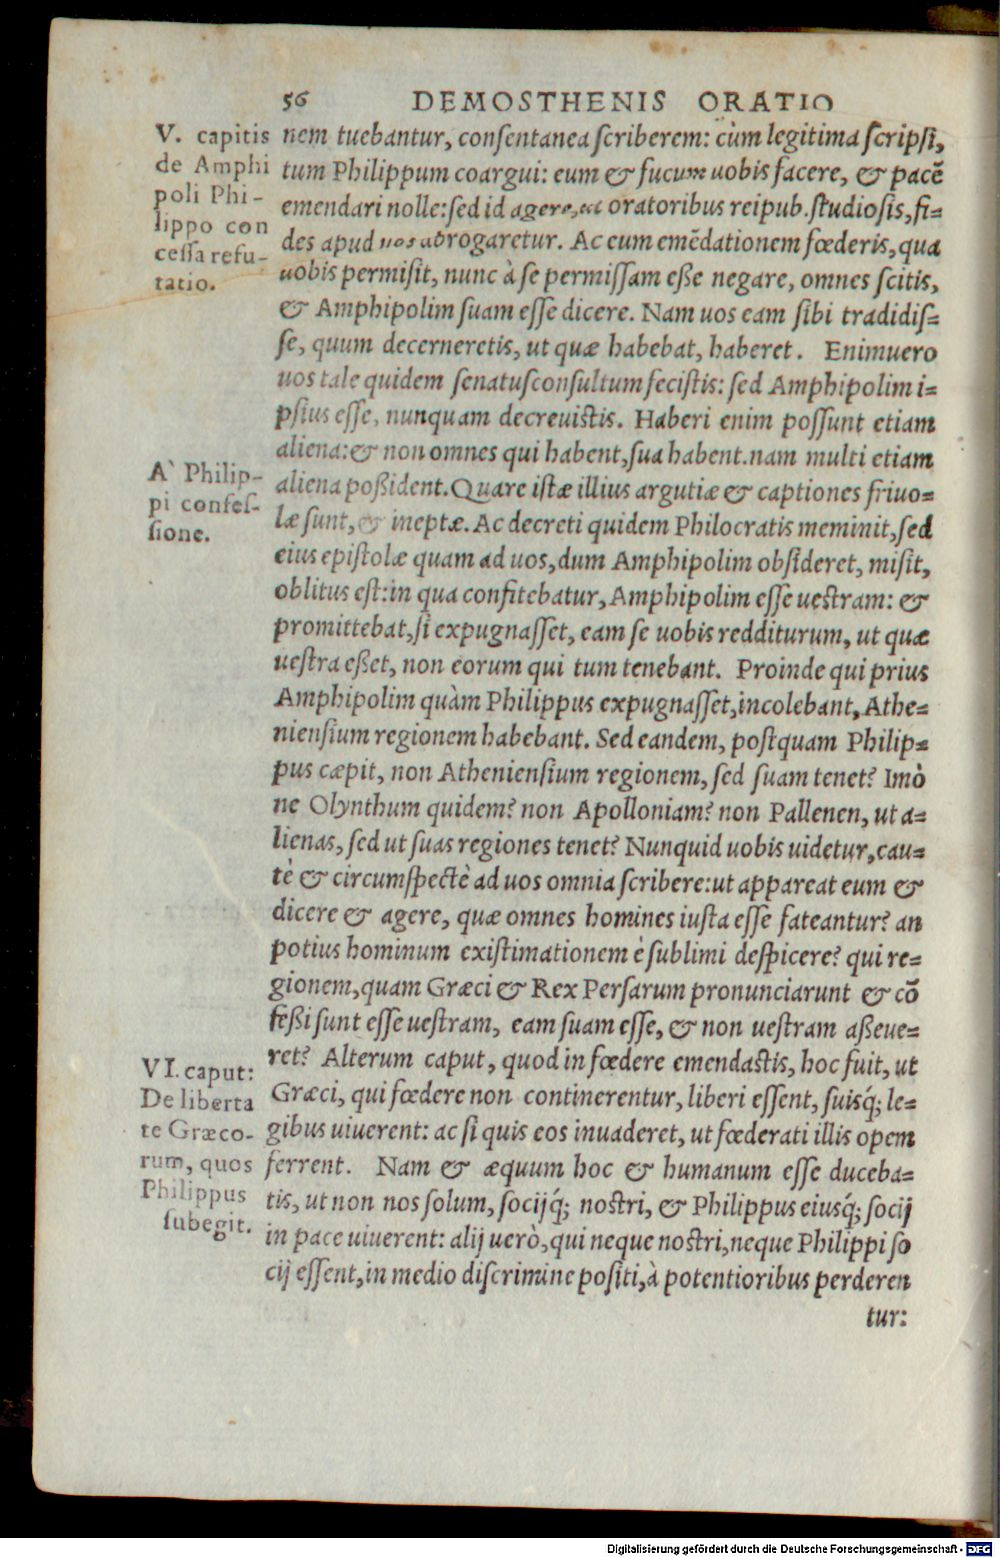 56 DEMOSTHENIS ORATIO
V. capitis
de Amphi
poli Phi-
lippo con
cessa refu-
tatio.
nem tuebantur, consentanea scriberem: cùm legitima scripsi,
tum Philippum coargui: eum & fucum uobis facere, & pacē
emendari nolle: sed id agere, ut oratoribus reipub. studiosis, fi=
des apud uos abrogaretur. Ac eum emēdationem fœderis, qua
uobis permisit, nunc à se permissam eße negare, omnes scitis,
& Amphipolim suam esse dicere. Nam uos eam sibi tradidis=
se, quum decerneretis, ut quæ habebat, haberet. Enimuero
uos tale quidem senatusconsultum fecistis: sed Amphipolim i=
psius esse, nunquam decreuistis. Haberi enim possunt etiam
aliena: & non omnes qui habent, sua habent. nam multi etiam
A` Philip-
pi confes-
sione.
aliena poßident. Quare istæ illius argutiæ & captiones friuo=
læ sunt, & ineptæ. Ac decreti quidem Philocratis meminit, sed
eius epistolæ quam ad uos, dum Amphipolim obsideret, misit,
oblitus est: in qua confitebatur, Amphipolim esse uestram: &
promittebat, si expugnasset, eam se uobis redditurum, ut quæ
uestra eßet, non eorum qui tum tenebant. Proinde qui prius
Amphipolim quàm Philippus expugnasset, incolebant, Athe=
niensium regionem habebant. Sed eandem, postquam Philip=
pus cæpit, non Atheniensium regionem, sed suam tenet? Imò
ne Olynthum quidem? non Apolloniam? non Pallenen, ut a=
lienas, sed ut suas regiones tenet? Nunquid uobis uidetur, cau=
tè & circumspectè ad uos omnia scribere: ut appareat eum &
dicere & agere, quæ omnes homines iusta esse fateantur? an
potius hominum existimationem è sublimi despicere? qui re=
gionem, quam Græci & Rex Persarum pronunciarunt & cō
feßi sunt esse uestram, eam suam esse, & non uestram aßeue=
VI. caput:
De liberta
te Græco-
rum, quos
Philippus
subegit.
ret? Alterum caput, quod in fœdere emendastis, hoc fuit, ut
Græci, qui fœdere non continerentur, liberi essent, suisq́; le=
gibus uiuerent: ac si quis eos inuaderet, ut fœderati illis opem
ferrent. Nam & æquum hoc & humanum esse duceba=
tis, ut non nos solum, socijq́; nostri, & Philippus eiusq́; socij
in pace uiuerent: alij uerò, qui neque nostri, neque Philippi so
cij essent, in medio discrimine positi, à potentioribus perderen
tur:
Digitalisierung gefördert durch die Deutsche Forschungsgemeinschaft - DFG